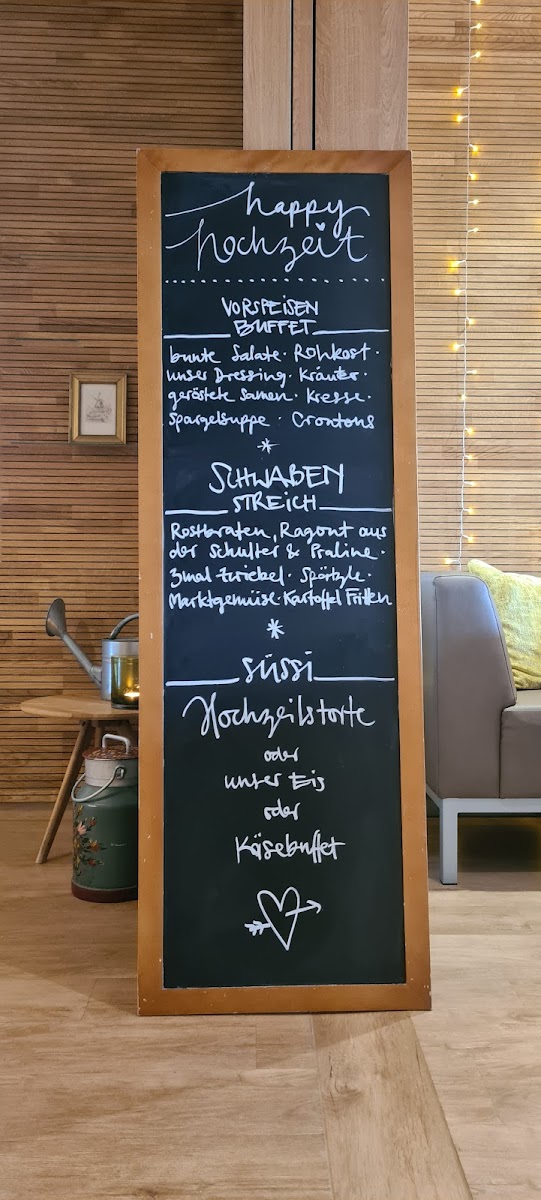 happy
hochzeit
VORSPEISEN
BUFFET
bunte Salate · Rohkost ·
unser Dressing · Kräuter ·
geröstete Samen · Kresse ·
Spargelsuppe · Croutons
*
SCHWABEN
STREICH
Rostbraten, Ragout aus
der Schulter & Praline ·
3mal Zwiebel · Spätzle ·
Marktgemüse · Kartoffel Fritten
*
süssi
Hochzeitstorte
oder
unser Eis
oder
Käsebuffet